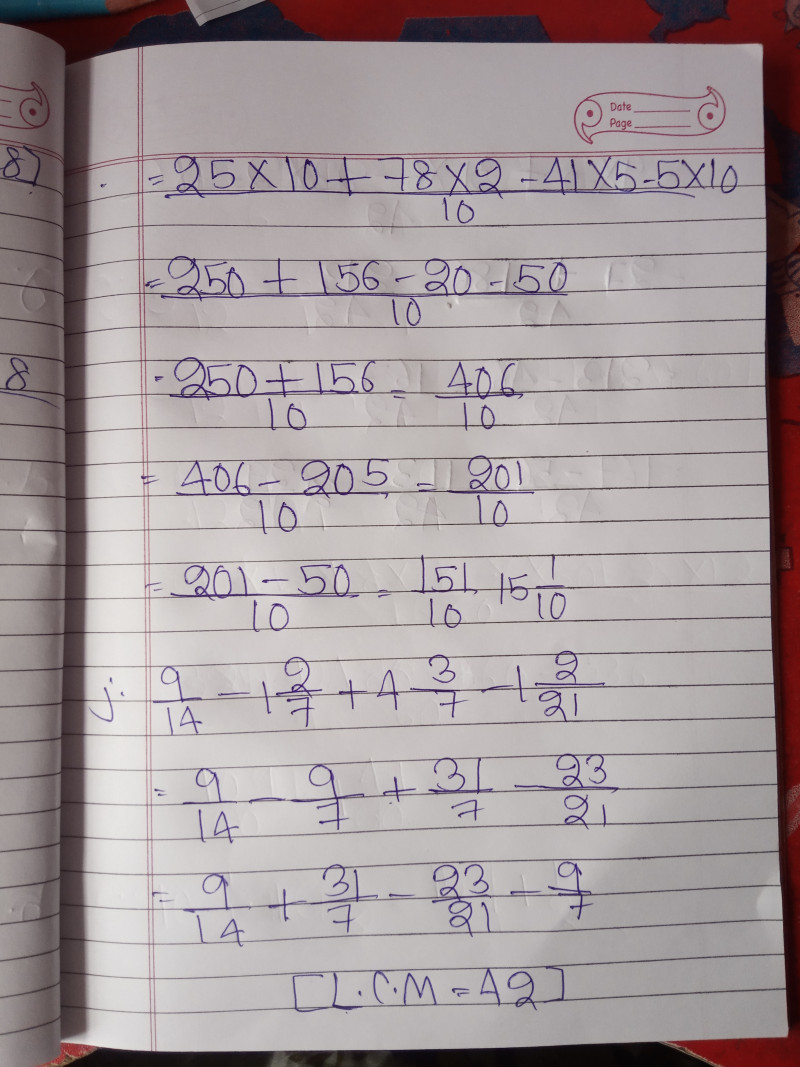 Date
Page
8)
= 25 × 10 + 78 × 2 - 41 × 5 - 5 × 10 / 10
= 250 + 156 - 20 - 50 / 10
8
- 250 + 156 / 10 = 406 / 10
= 406 - 205 / 10 = 201 / 10
= 201 - 50 / 10 = 151 / 10 15 1/10
j. 9/14 - 1 2/7 + 4 3/7 - 1 2/21
= 9/14 - 9/7 + 31/7 - 23/21
= 9/14 + 31/7 - 23/21 - 9/7
[L.C.M = 42]